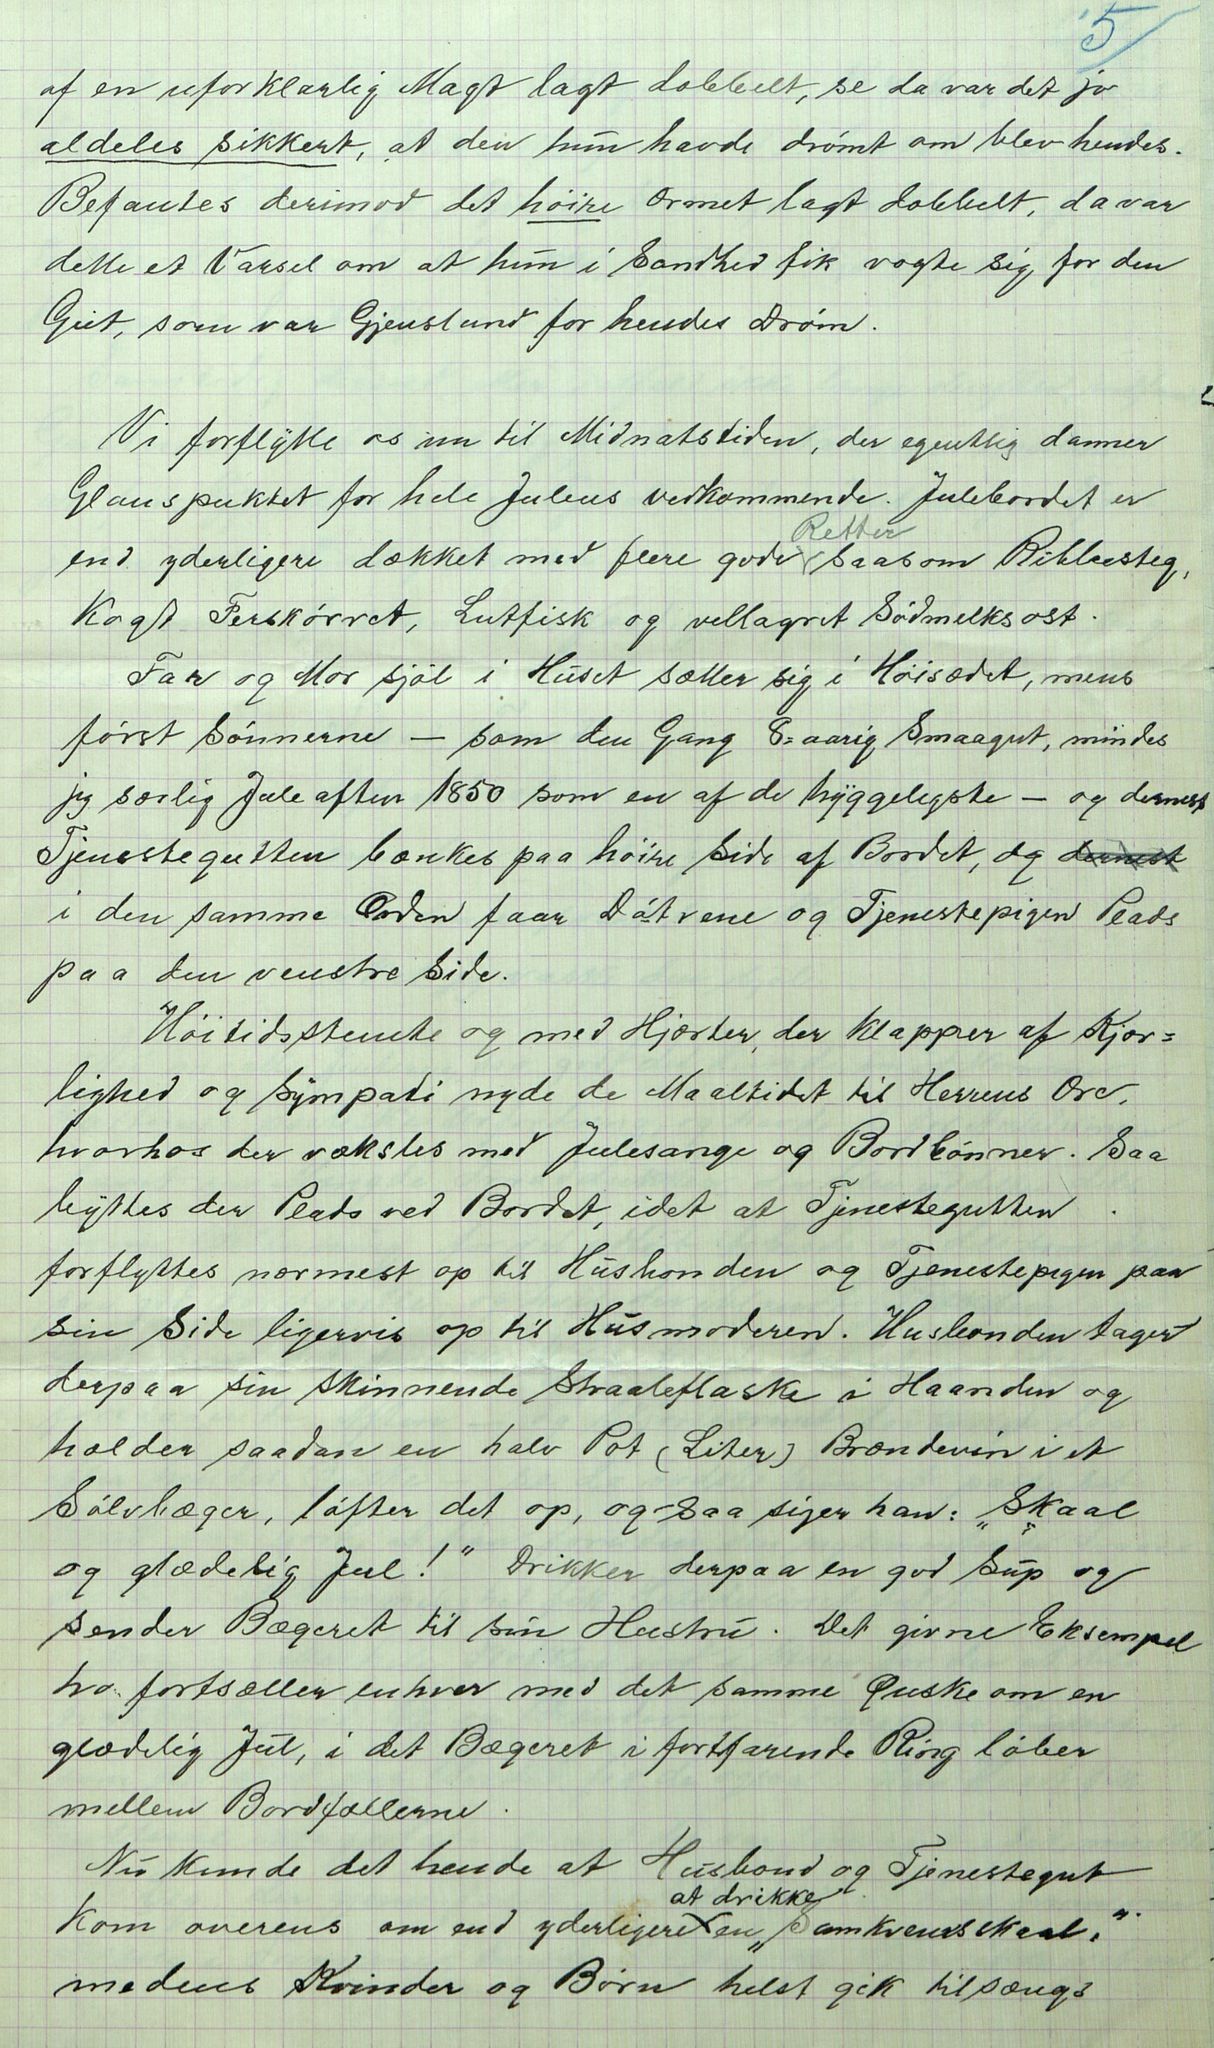 5
af en uforklarlig Magt lagt dobbelt, se da var det jo
aldeles sikkert, at den hun havde drømt om blev hendes.
Befantes derimod det høire Ørmet lagt dobbelt, da var
dette et Varsel om at hun i Sandhed fik vogte sig for den
Gut, som var Gjenstand for hendes Drøm.
Vi forflytte os nu til Midnatstiden, der egentlig danner
Glanspuktet for hele Julens vedkommende. Julebordet er
end yderligere dækket med flere gode Retter saasom Ribbesteg,
Kogt Ferskørret, Lutfisk og vellagret Sødmelksost.
Far og Mor sjøl i Huset sætter sig i Høisædet, mens
først Sønnerne — som den Gang 8=aarig Smaagut, mindes
jeg særlig Juleaften 1850 som en af de hyggeligste — og dernest
Tjenestegutten bænkes paa høire Side af Bordet, og dernest
i den samme Orden faar Døtrene og Tjenestepigen Plads
paa den venstre Side.
Høitidsstemte og med Hjærter, der klapper af Kjær=
lighed og Sympati nyde de Maaltidet til Herrens Ære,
hvorhos der væksles med Julesange og Bordbønner. Saa
byttes der Plads ved Bordet, idet at Tjenestegutten
forflyttes nærmest op til Husbonden og Tjenestepigen paa
sin Side ligervis op til Husmoderen. Husbonden tager
derpaa sin skinnende Straaleflaske i Haanden og
hælder saadan en halv Pot (Liter) Brændevin i et
Sølvbæger, løfter det op, og saa siger han: „Skaal
og glædelig Jul!" Drikker derpaa en god Sup og
sender Bægeret til sin Hustru. Det givne Eksempel
fortsætter enhver med det samme Ønske om en
glædelig Jul, i det Bægeret i fortfarende Ring løber
mellem Bordfællerne.
Nu kunde det hende at Husbond og Tjenestegut
kom overens om end yderligere at drikke en „Samkvemsskaal."
medens Kvinder og Børn helst gik tilsængs